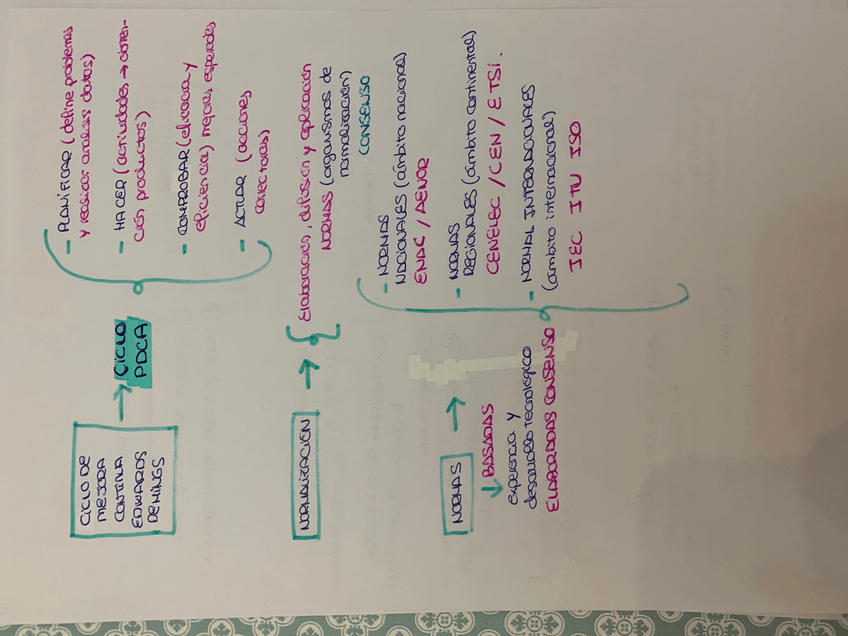 CICLO DE
MEJORA
CONTINUA
EDWARDS
DEMINGS
→ CICLO
PDCA
- PLANIFICAR (define problemas
y realizar analisis datos)
- HACER (actividades → obten-
ción productos)
- COMPROBAR (eficacia y
eficiencia) mejoras esperadas
- ACTUAR (acciones
correctoras)
NORMALIZACIÓN → {
Elaboración, difusión y aplicación
NORMAS (organismos de
normalización)
CONSENSO
NORMAS →
↓ BASADAS
experiencia y
desarrollo tecnológico
ELABORADAS CONSENSO
- NORMAS
NACIONALES (ámbito nacional)
ENAC / AENOR
- NORMAS
REGIONALES (ámbito continental)
CENELEC / CEN / ETSI.
- NORMAL INTERNACIONALES
(ámbito internacional)
IEC ITU ISO